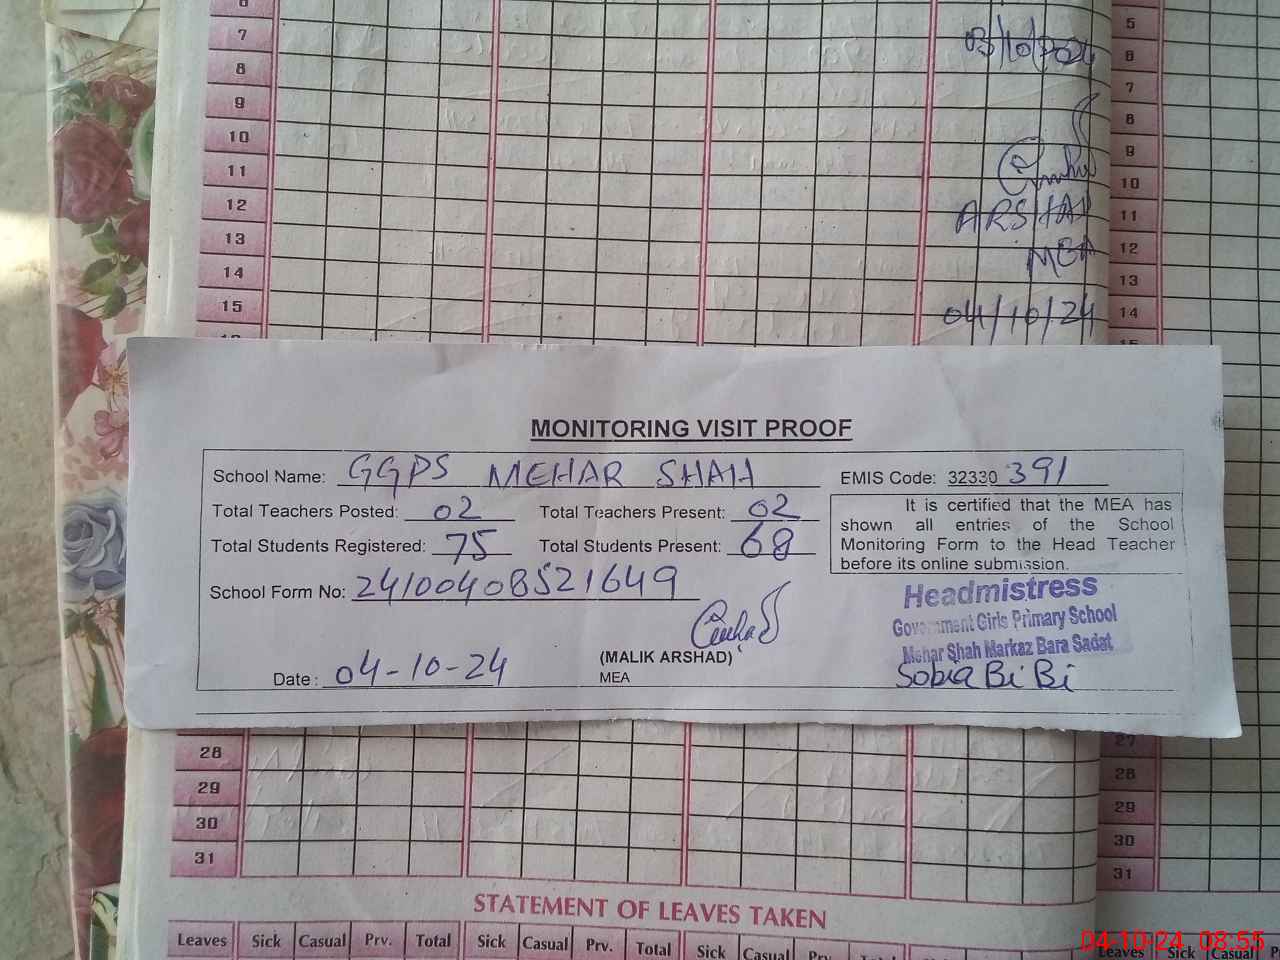 6
7
8
9
10
11
12
13
14
15
03/10/2024
ARSHAD
MEA
04/10/24
5
6
7
8
9
10
11
12
13
14
15
MONITORING VISIT PROOF
School Name: GGPS MEHAR SHAH EMIS Code: 32330 391
Total Teachers Posted: 02 Total Teachers Present: 02
Total Students Registered: 75 Total Students Present: 68
It is certified that the MEA has
shown all entries of the School
Monitoring Form to the Head Teacher
before its online submission.
School Form No: 24100408521649
Headmistress
Government Girls Primary School
Mehar Shah Markaz Bara Sadat
Sobia Bi Bi
(MALIK ARSHAD)
MEA
Date: 04-10-24
28
29
30
31
27
28
29
30
31
STATEMENT OF LEAVES TAKEN
Leaves Sick Casual Prv. Total Sick Casual Prv. Total Sick Casual Prv. Total Leaves Sick Casual
04-10-24 08:55